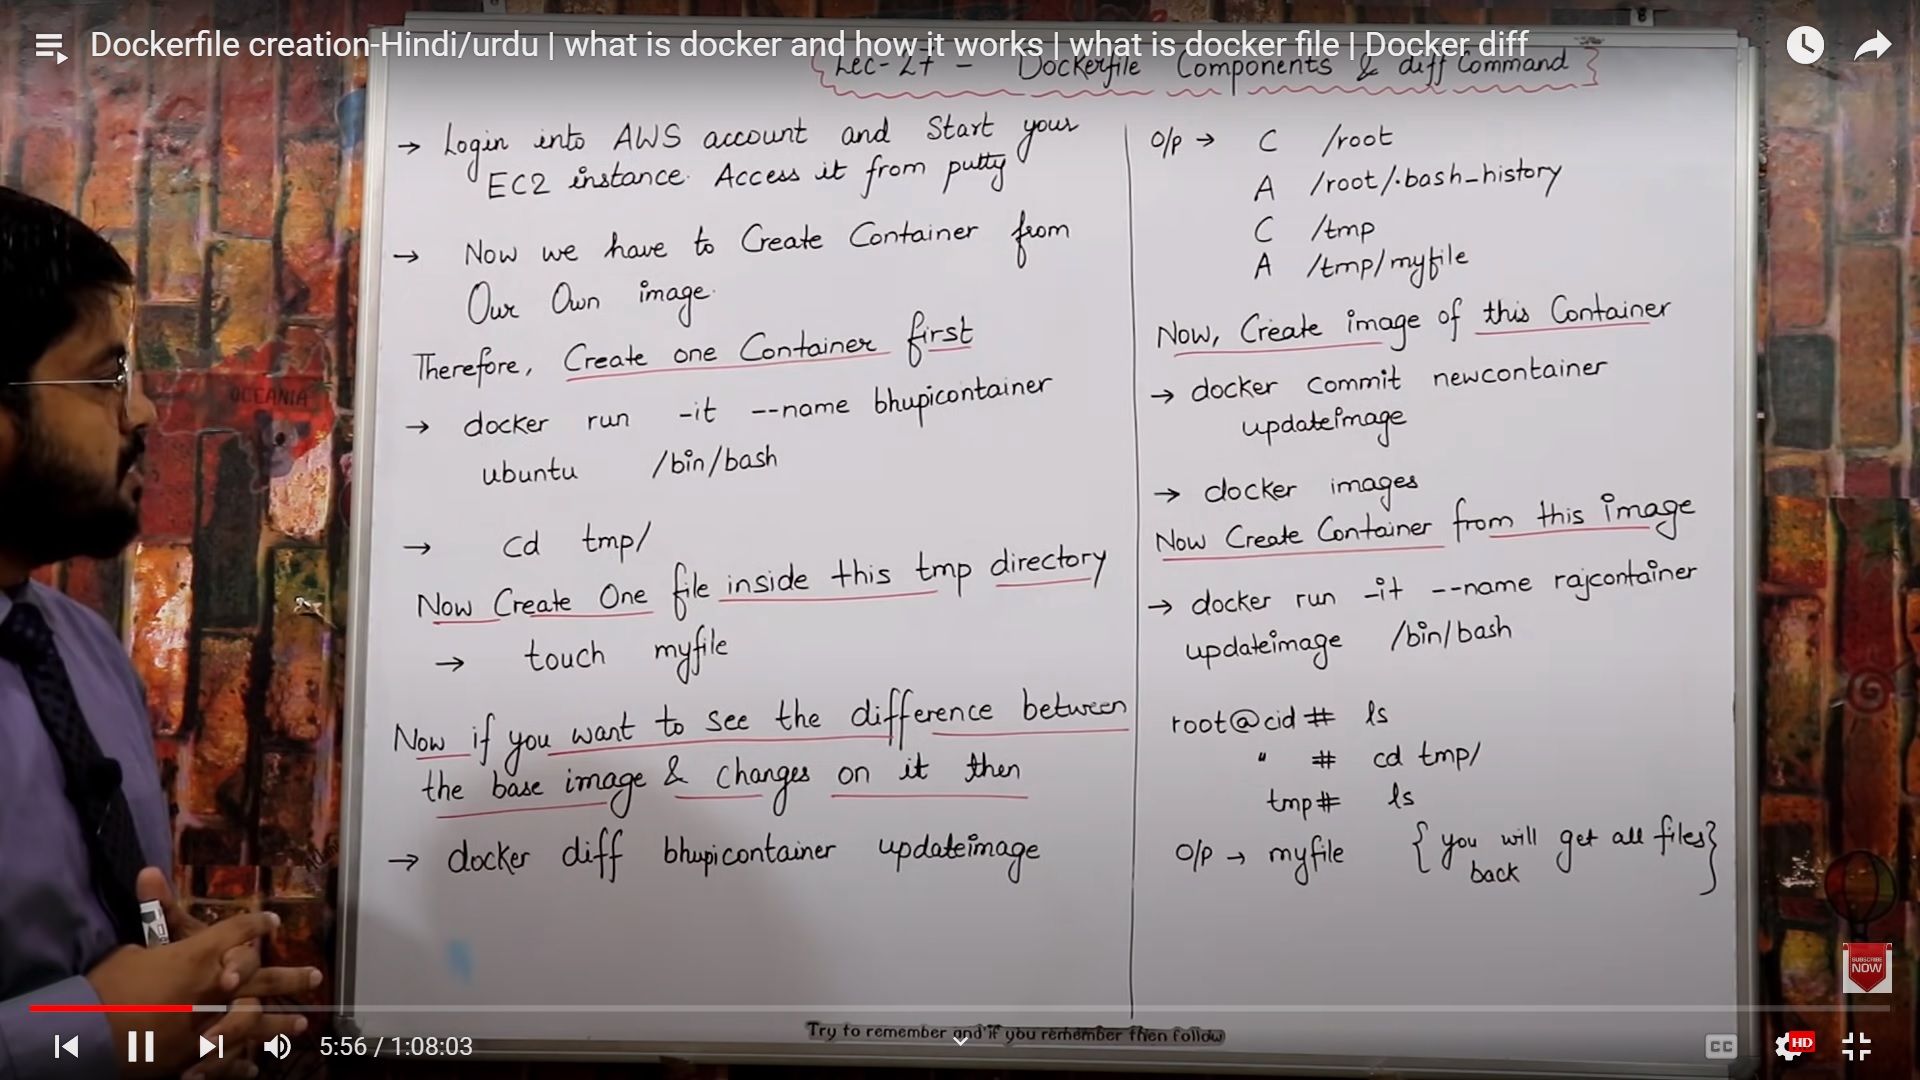 Dockerfile creation-Hindi/urdu | what is docker and how it works | what is docker file | Docker diff
Lec-27 - Dockerfile Components & diff Command
→ Login into AWS account and Start your
EC2 instance. Access it from putty
→ Now we have to Create Container from
Our Own image.
Therefore, Create one Container first
→ docker run -it --name bhupicontainer
ubuntu /bin/bash
→ cd tmp/
Now Create One file inside this tmp directory
→ touch myfile
Now if you want to see the difference between
the base image & changes on it then
→ docker diff bhupicontainer updateimage
O/P → C /root
A /root/.bash_history
C /tmp
A /tmp/myfile
Now, Create image of this Container
→ docker commit newcontainer
updateimage
→ docker images
Now Create Container from this image
→ docker run -it --name rajcontainer
updateimage /bin/bash
root@cid # ls
" # cd tmp/
tmp# ls
O/P → myfile {you will get all files}
back
OCEANIA
SUBSCRIBE
NOW
Try to remember and if you remember then follow
5:56 / 1:08:03
CC
HD